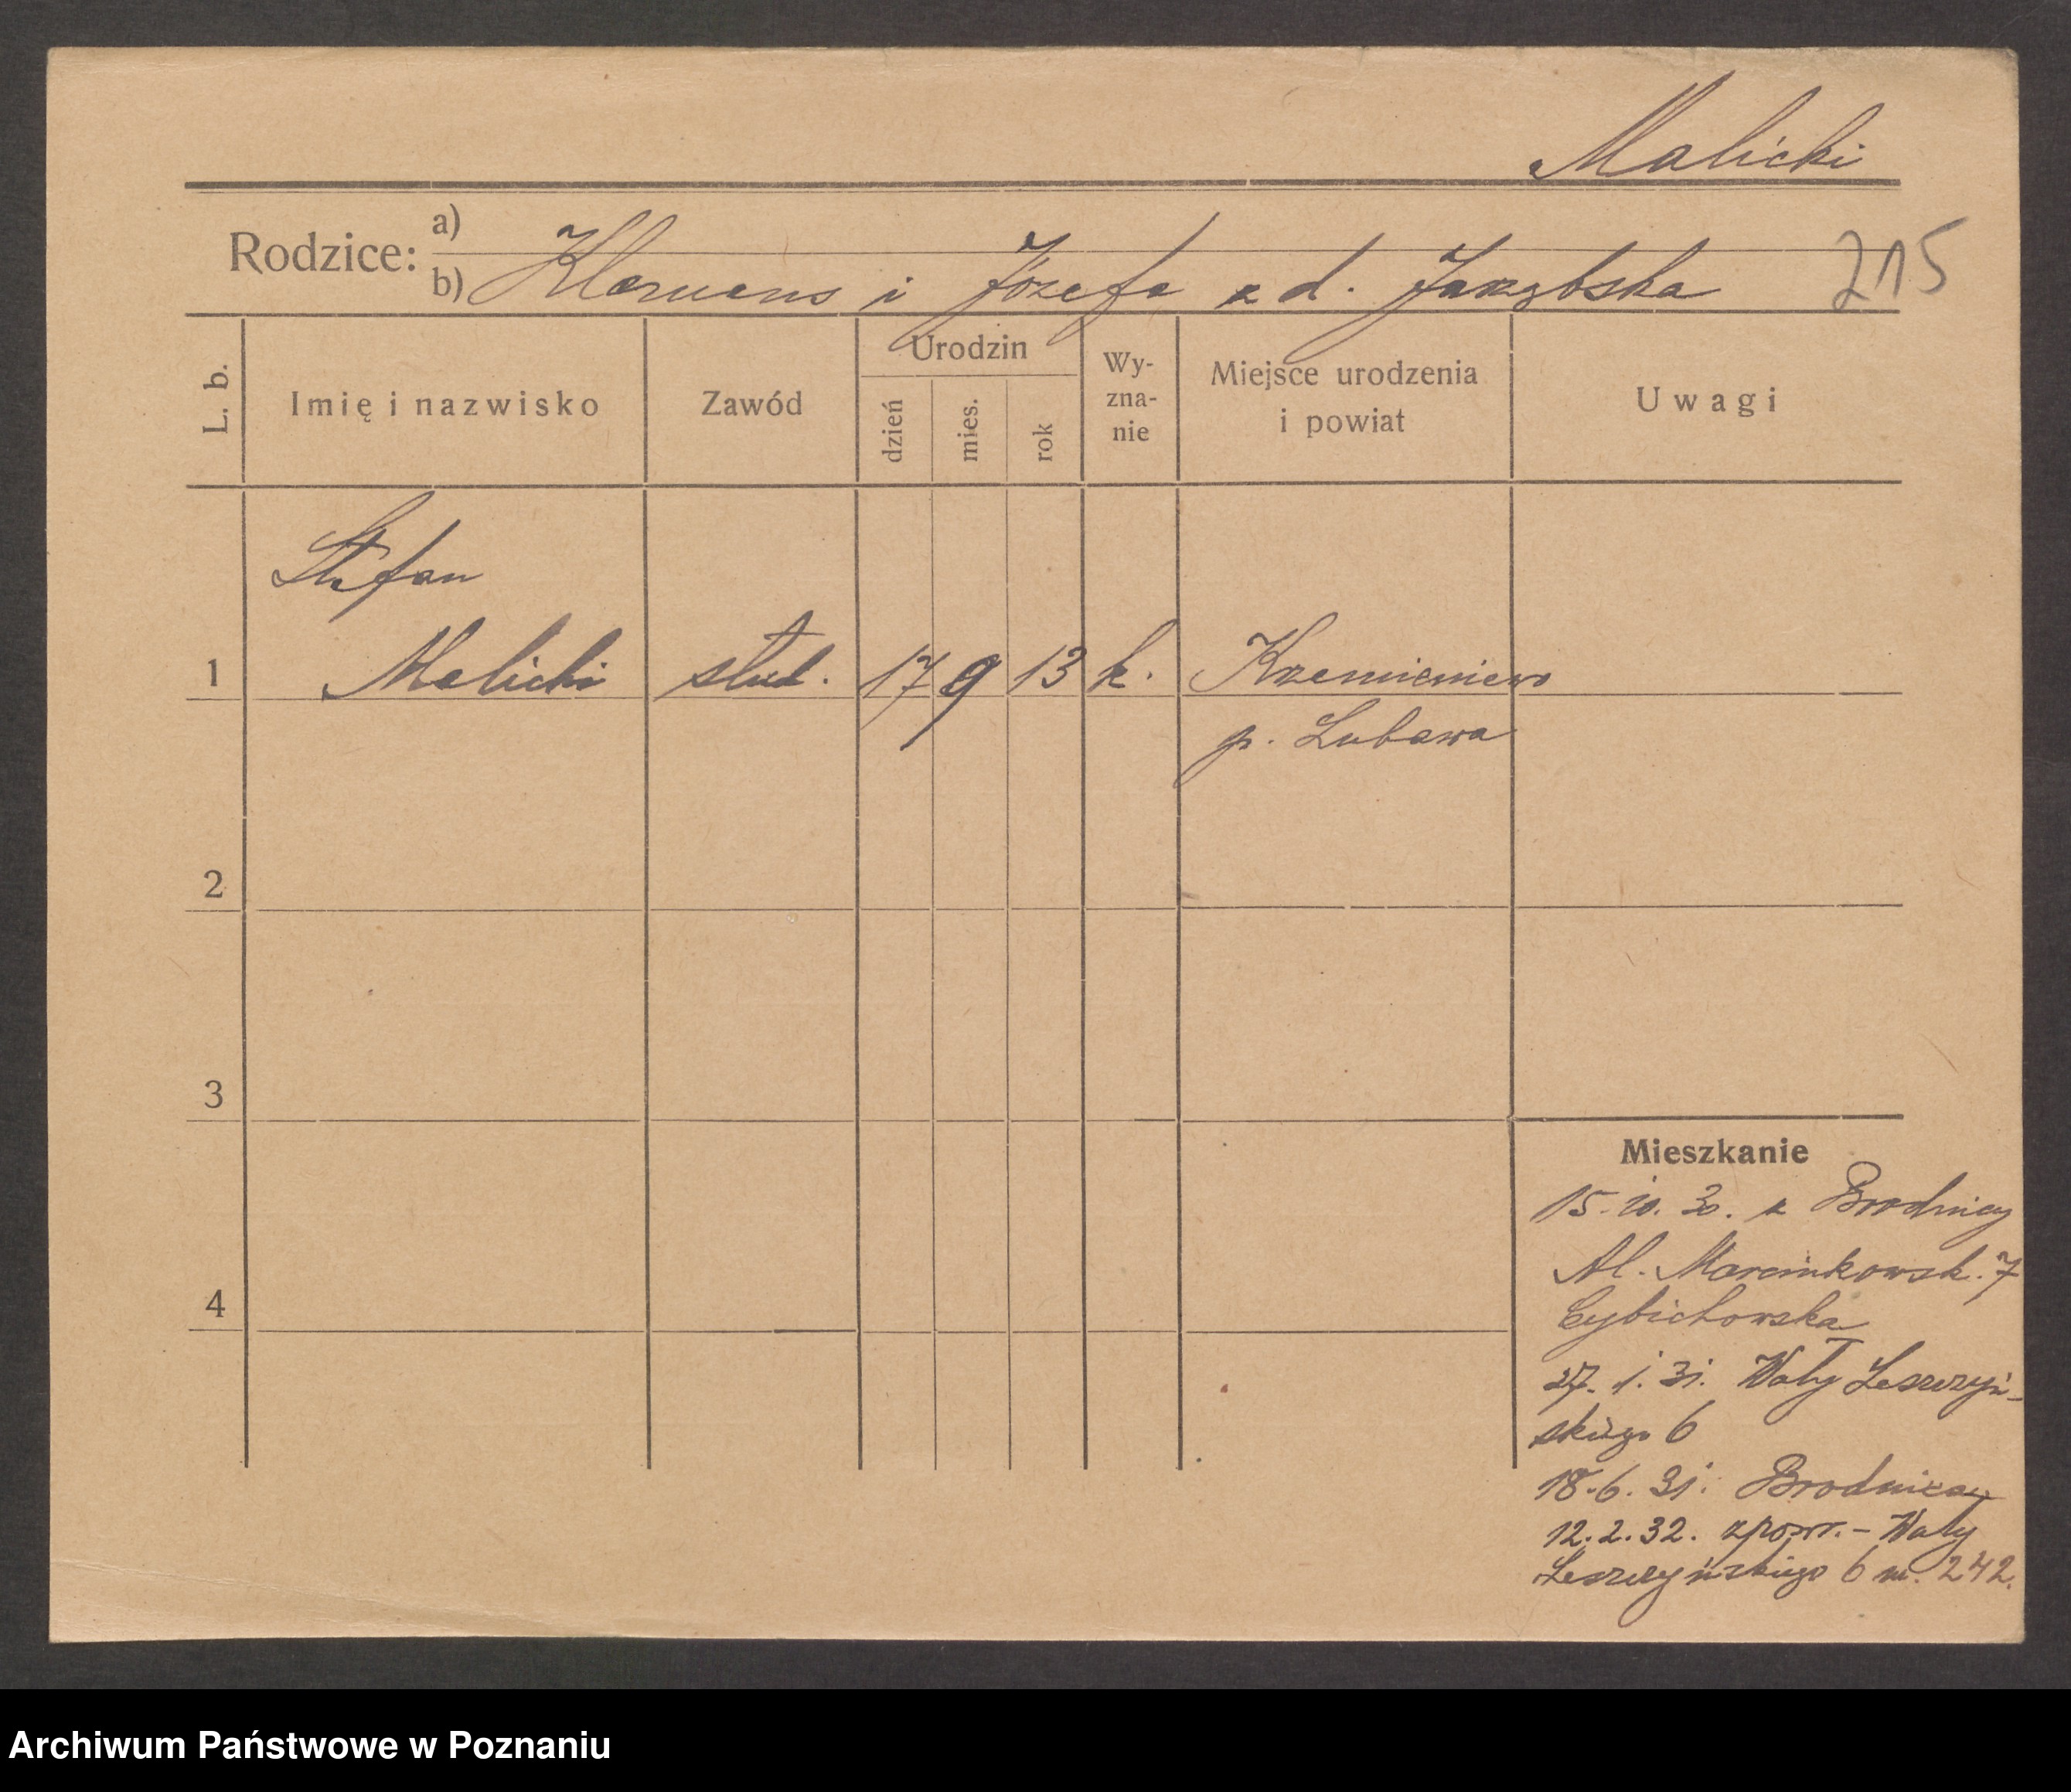 Malicki
Rodzice:
a)
b) Klemens i Józefa z d. Jarzębska
215
L. b.
Imię i nazwisko
Zawód
Urodzin
dzień
mies.
rok
Wy-
zna-
nie
Miejsce urodzenia
i powiat
Uwagi
Stefan
1 Malicki stud. 17 9 13 k. Krzemieniewo
p. Lubawa
2
3
4
Mieszkanie
15. 10. 30. z Brodnicy
Al. Marcinkowsk. 7
Cybichowska
27. 1. 31. Wały Leszczyń-
skiego 6
18. 6. 31. Brodnica
12. 2. 32. zpowr. - Wały
Leszczyńskiego 6 m. 242.
Archiwum Państwowe w Poznaniu